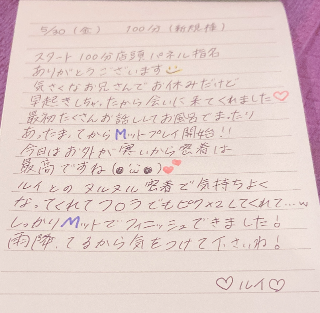 5/30 (金) 100分 (新規様)
スタート100分店頭パネル指名
ありがとうございます
気さくなお兄さんでお休みだけど
早起きしちゃったから会いに来てくれました♡
最初たくさんお話ししてお風呂でまったり
あったまってからMットプレイ開始!!
今日はお外が寒いから密着は
最高ですね(●'ω'●)
ルイとのヌルヌル密着で気持ちよく
なってくれてフロうでもピク×2してくれて...w
しっかりMットでフィニッシュできました!
雨降ってるから気をつけて下さいね!
♡ルイ♡